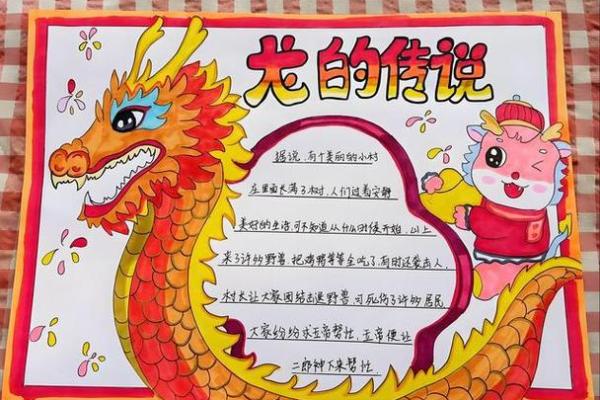 龙的传说
据说,有个美丽的小村
在里面长满了树,人们过着安静
美好的生活,可不知道从什么时候开始,山上
来了许多野兽,把鸡鸭等等全吃了,有时还袭击人,
村长让大家团结击退野兽,可死伤了许多居民
大家纷纷求玉帝帮忙,玉帝便让
二郎神下来帮忙